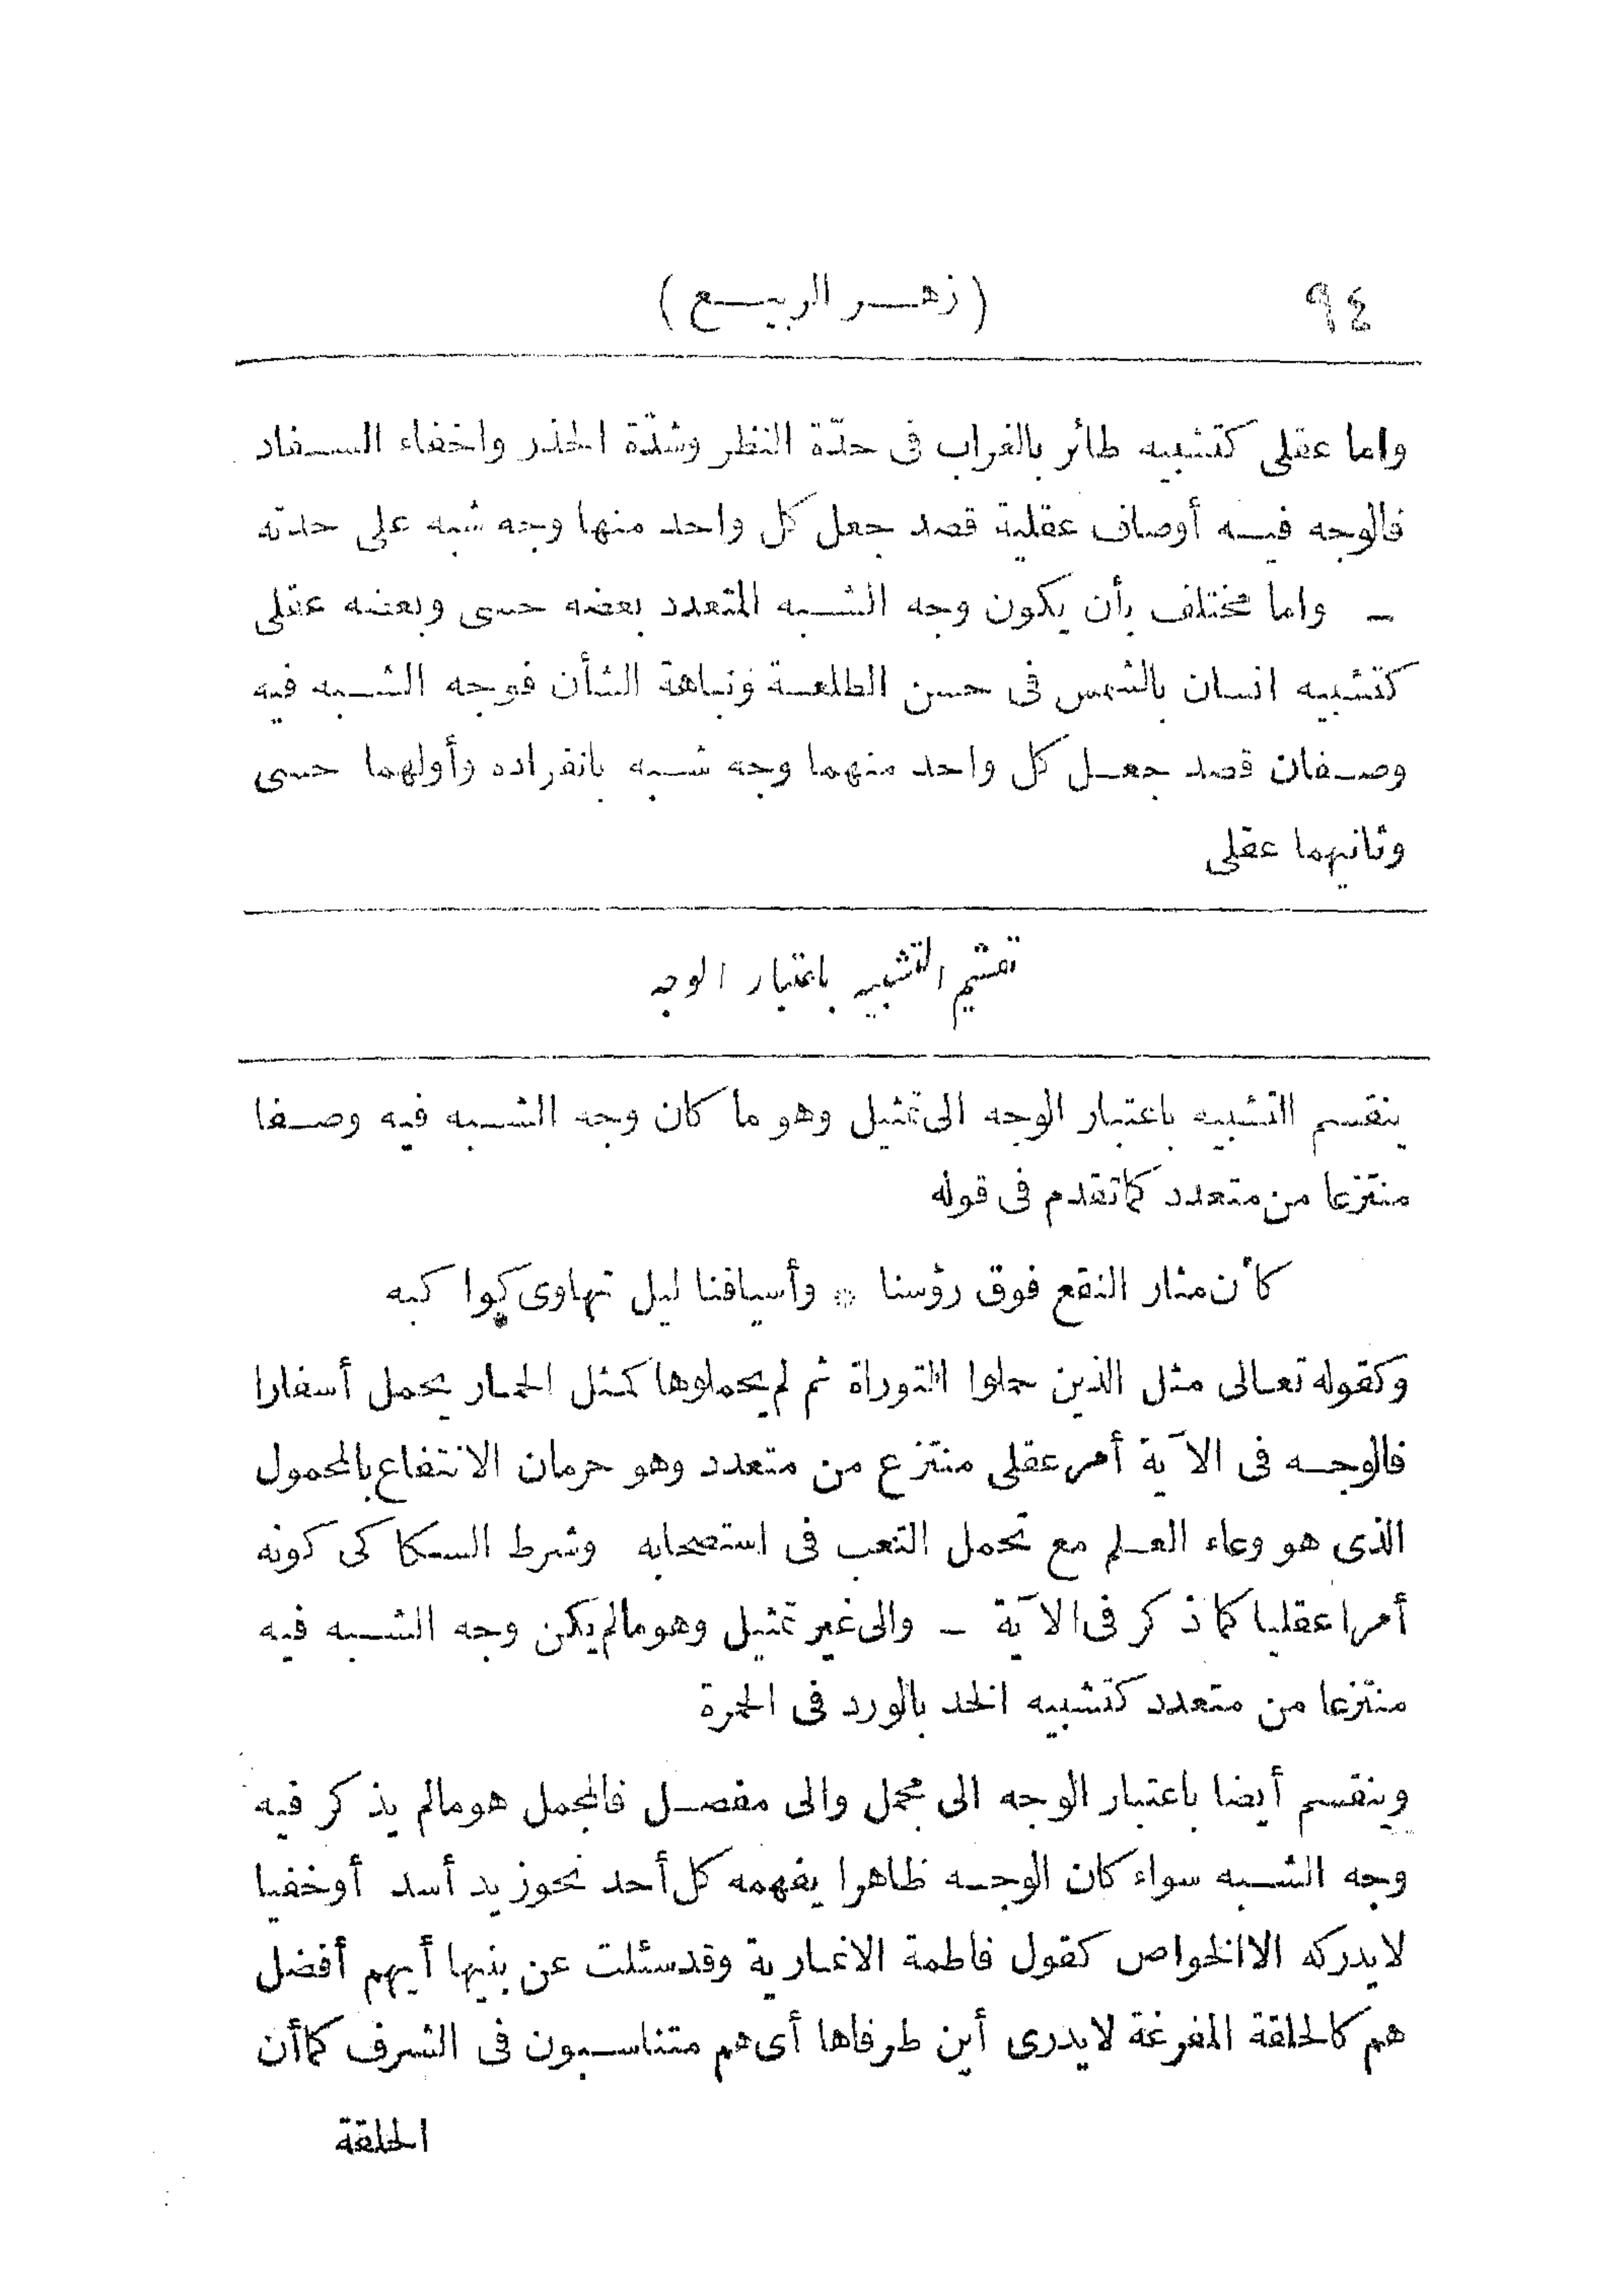 ٩٤ (زهر الربيع)
واما عقلى كتشبيه طائر بالغراب فى حدّة النظر وشدّة الحذر واخفاء السفاد
فالوجه فيه أوصاف عقلية قصد جعل كل واحد منها وجه شبه على حدته
ـ واما مختلف بأن يكون وجه الشبه المتعدد بعضه حسى وبعضه عقلى
كتشبيه انسان بالشمس فى حسن الطلعة ونباهة الشأن فوجه الشبه فيه
وصفان قصد جعل كل واحد منهما وجه شبه بانفراده وأولهما حسى
وثانيهما عقلى
تقسيم التشبيه باعتبار الوجه
ينقسم التشبيه باعتبار الوجه الى تمثيل وهو ما كان وجه الشبه فيه وصفا
منتزعا من متعدد كما تقدم فى قوله
كأن مثار النقع فوق رؤسنا * وأسيافنا ليل تهاوى كواكبه
وكقوله تعالى مثل الذين حملوا التوراة ثم لم يحملوها كمثل الحمار يحمل أسفارا
فالوجه فى الآية أمر عقلى منتزع من متعدد وهو حرمان الانتفاع بالمحمول
الذى هو وعاء العلم مع تحمل التعب فى استصحابه وشرط السكاكى كونه
أمرا عقليا كما ذكر فى الآية ـ والى غير تمثيل وهو مالم يكن وجه الشبه فيه
منتزعا من متعدد كتشبيه الخد بالورد فى الحمرة
وينقسم أيضا باعتبار الوجه الى مجمل والى مفصل فالمجمل هو مالم يذكر فيه
وجه الشبه سواء كان الوجه ظاهرا يفهمه كل أحد نحو زيد أسد أو خفيا
لايدركه الا الخواص كقول فاطمة الانمارية وقد سئلت عن بنيها أيهم أفضل
هم كالحلقة المفرغة لايدرى أين طرفاها أى هم متناسبون فى الشرف كما أن
الحلقة